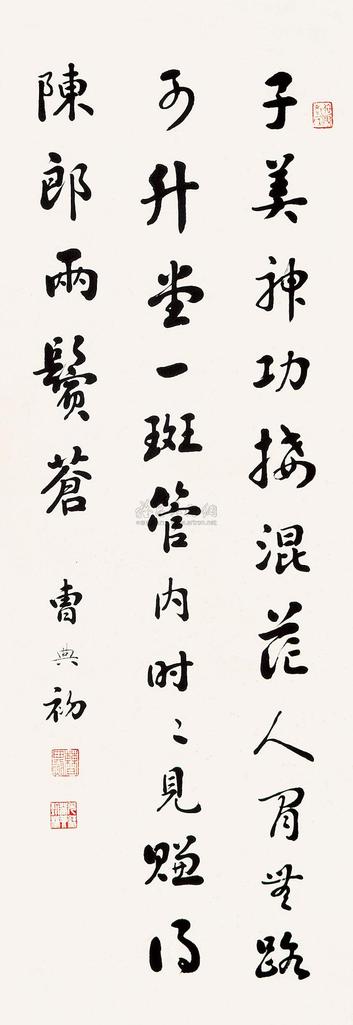 子美神功接混茫人間無路
可升堂一斑管內時〻見賺得
陳郎兩鬢蒼 曹典初